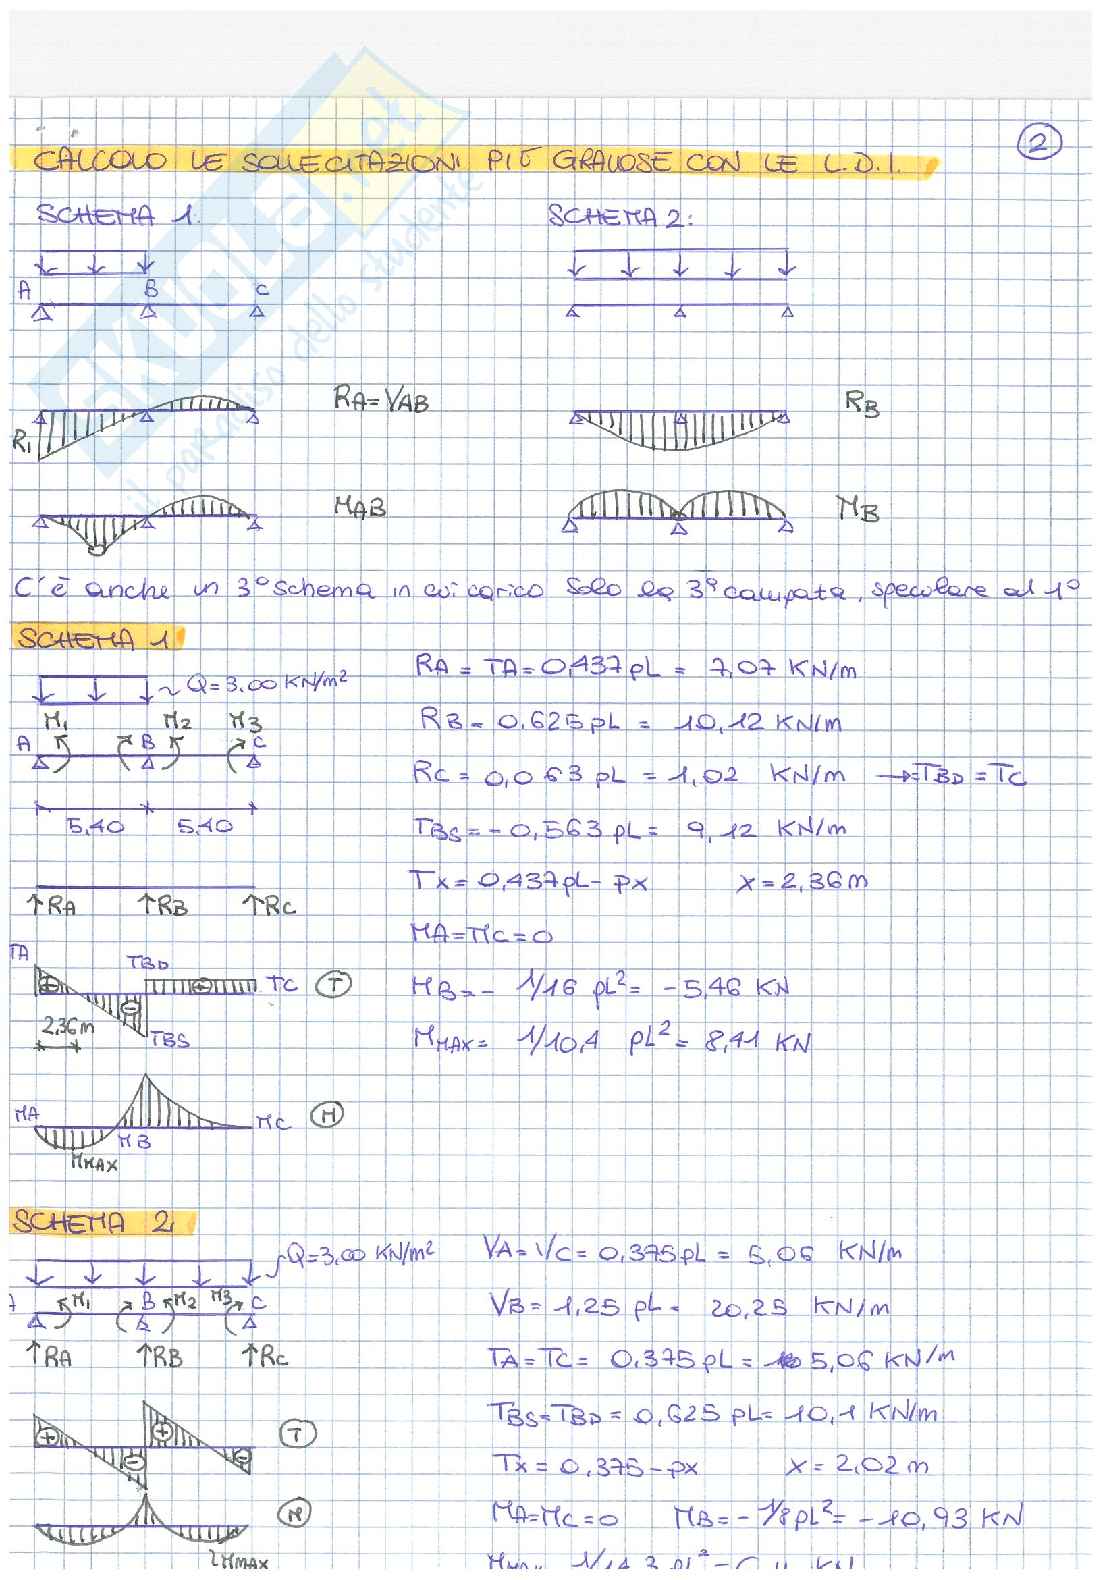 2
CALCOLO LE SOLLECITAZIONI PIÙ GRAVOSE CON LE L.D.I.
SCHEMA 1:
SCHEMA 2:
A B C
RA = VAB
R1
RB
MAB
MB
C'è anche un 3° schema in cui carico solo la 3ª campata, speculare al 1°
SCHEMA 1
Q = 3.00 KN/m²
M1 M2 M3
A B C
5,40 5,40
↑RA ↑RB ↑RC
TA TBD TC T
2,36 m
TBS
MA MB MC M
MMAX
RA = TA = 0,437 pL = 7,07 KN/m
RB = 0,625 pL = 10,12 KN/m
RC = 0,063 pL = 1,02 KN/m → = TBD = TC
TBS = - 0,563 pL = 9,12 KN/m
Tx = 0,437 pL - px x = 2,36 m
MA = MC = 0
MB = - 1/16 pL² = -5,46 KN
MMAX = 1/10,4 pL² = 8,41 KN
SCHEMA 2
Q = 3,00 KN/m²
M1 B M2 M3 C
↑RA ↑RB ↑RC
T
M
MMAX
VA = VC = 0,375 pL = 5,06 KN/m
VB = 1,25 pL = 20,25 KN/m
TA = TC = 0,375 pL = 5,06 KN/m
TBS = TBD = 0,625 pL = 10,1 KN/m
Tx = 0,375 - px x = 2,02 m
MA = MC = 0 MB = - 1/8 pL² = -10,93 KN
SKUOLA.net
il paradiso dello studente